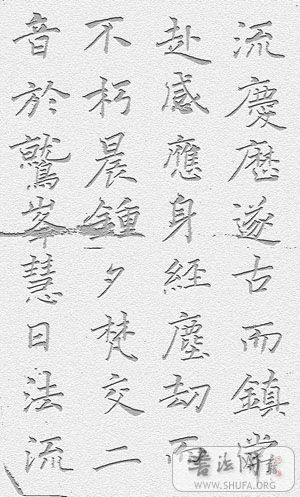 流慶歷遂古而鎮常
赴感應身經塵劫而
不朽晨鍾夕梵交二
音於鷲峯慧日法流
WWW.SHUFA.ORG